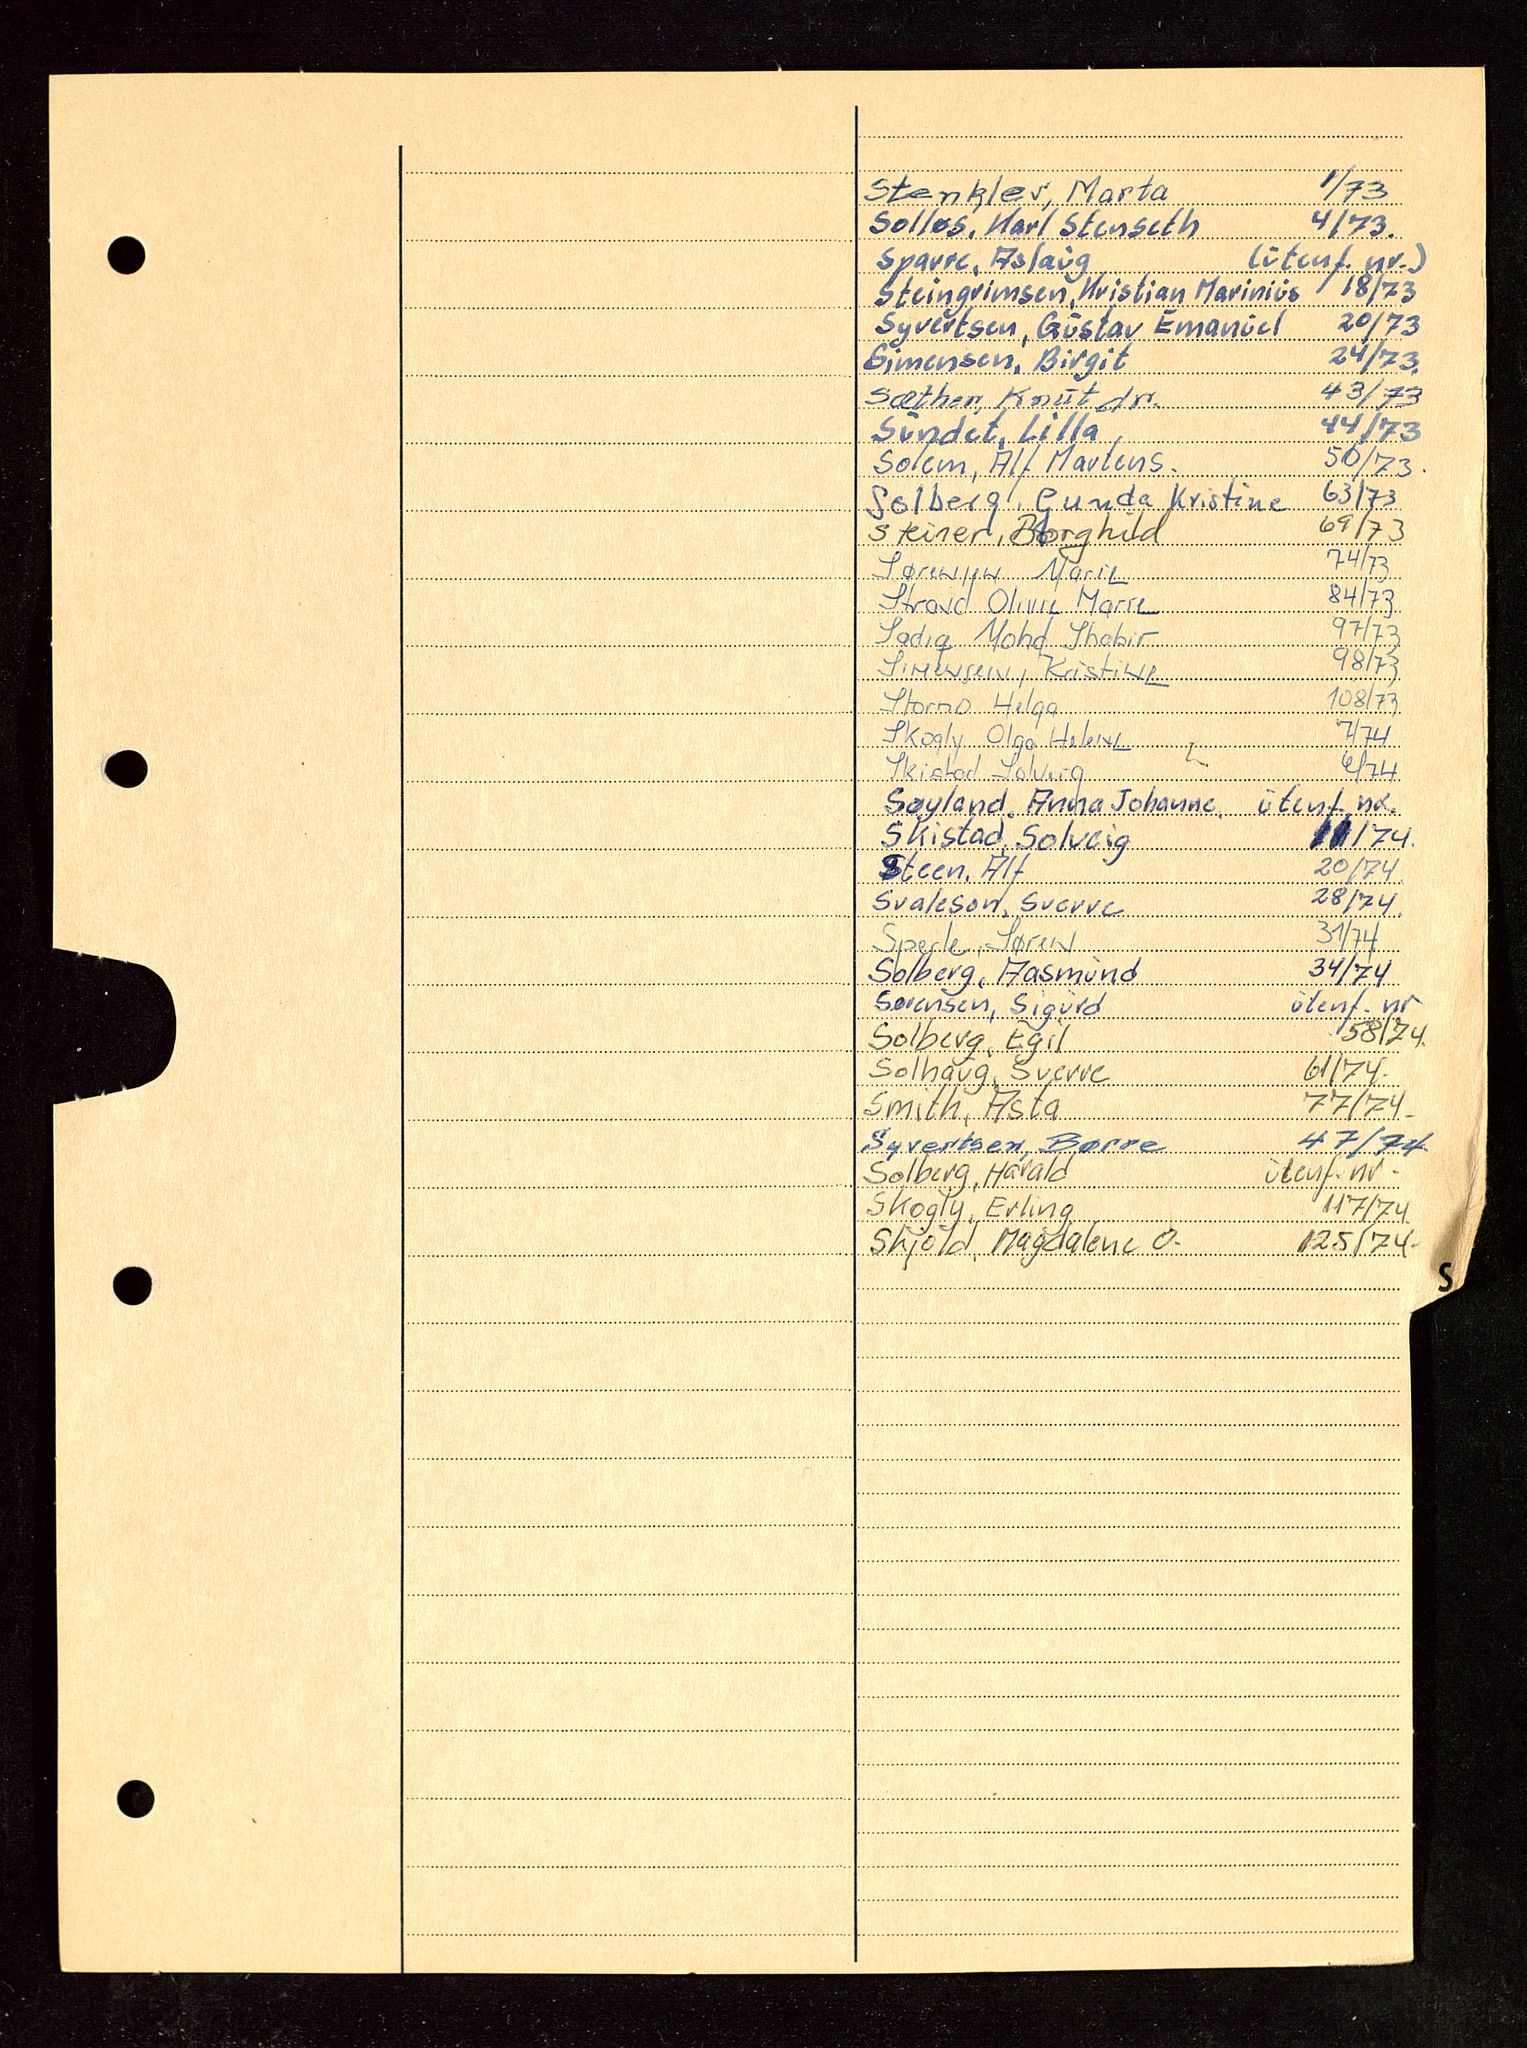 Stenkler, Marta 1/73
Solløs, Karl Stenseth 4/73.
Sparre, Aslaug (utenf. nr.)
Steingrimsen, Kristian Marinius 18/73
Syvertsen, Gustav Emanuel 20/73
Simensen, Birgit 24/73.
Sæther, Knut dr. 43/73
Sundet, Lilla, 44/73
Solem, Alf Martens. 50/73.
Solberg, Gunda Kristine 63/73
Steiner, Borghild 69/73
Sørensen Marie 74/73
Strand Olivie Marie 84/73
Sadiq Mohd Shabir 97/73
Simensen, Kristine 98/73
Stormo Helga 108/73
Skogly Olga Helene 7/74
Skistad Solveig /74
Søyland, Anna Johanne. utenf. nr.
Skistad, Solveig 11/74.
Steen, Alf 20/74.
Svaleson, Sverre 28/74.
Sperle, Søren 31/74
Solberg, Aasmund 34/74
Sørensen, Sigurd utenf. nr
Solberg, Egil 58/74.
Solhaug, Sverre 61/74.
Smith, Asta 77/74.
Syvertsen, Børre 47/74
Solberg, Harald utenf. nr.
Skogly, Erling 117/74.
Skjold, Magdalene O. 125/74.
S